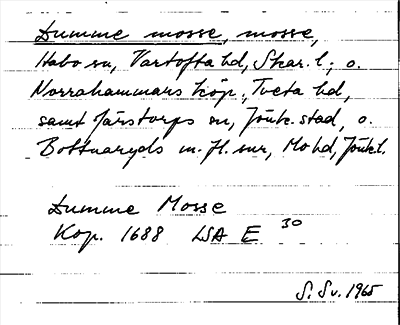 Dumme mosse, mosse,
Habo sn, Vartofta hd, Skar. l.; o.
Norrahammars köp., Tveta hd,
samt Järstorps sn, Jönk. stad, o.
Bottnaryds m. fl. snr, Mo hd, Jönk.l.
Dumme Mosse
Kop. 1688 LSA E 30
S. Sv. 1965